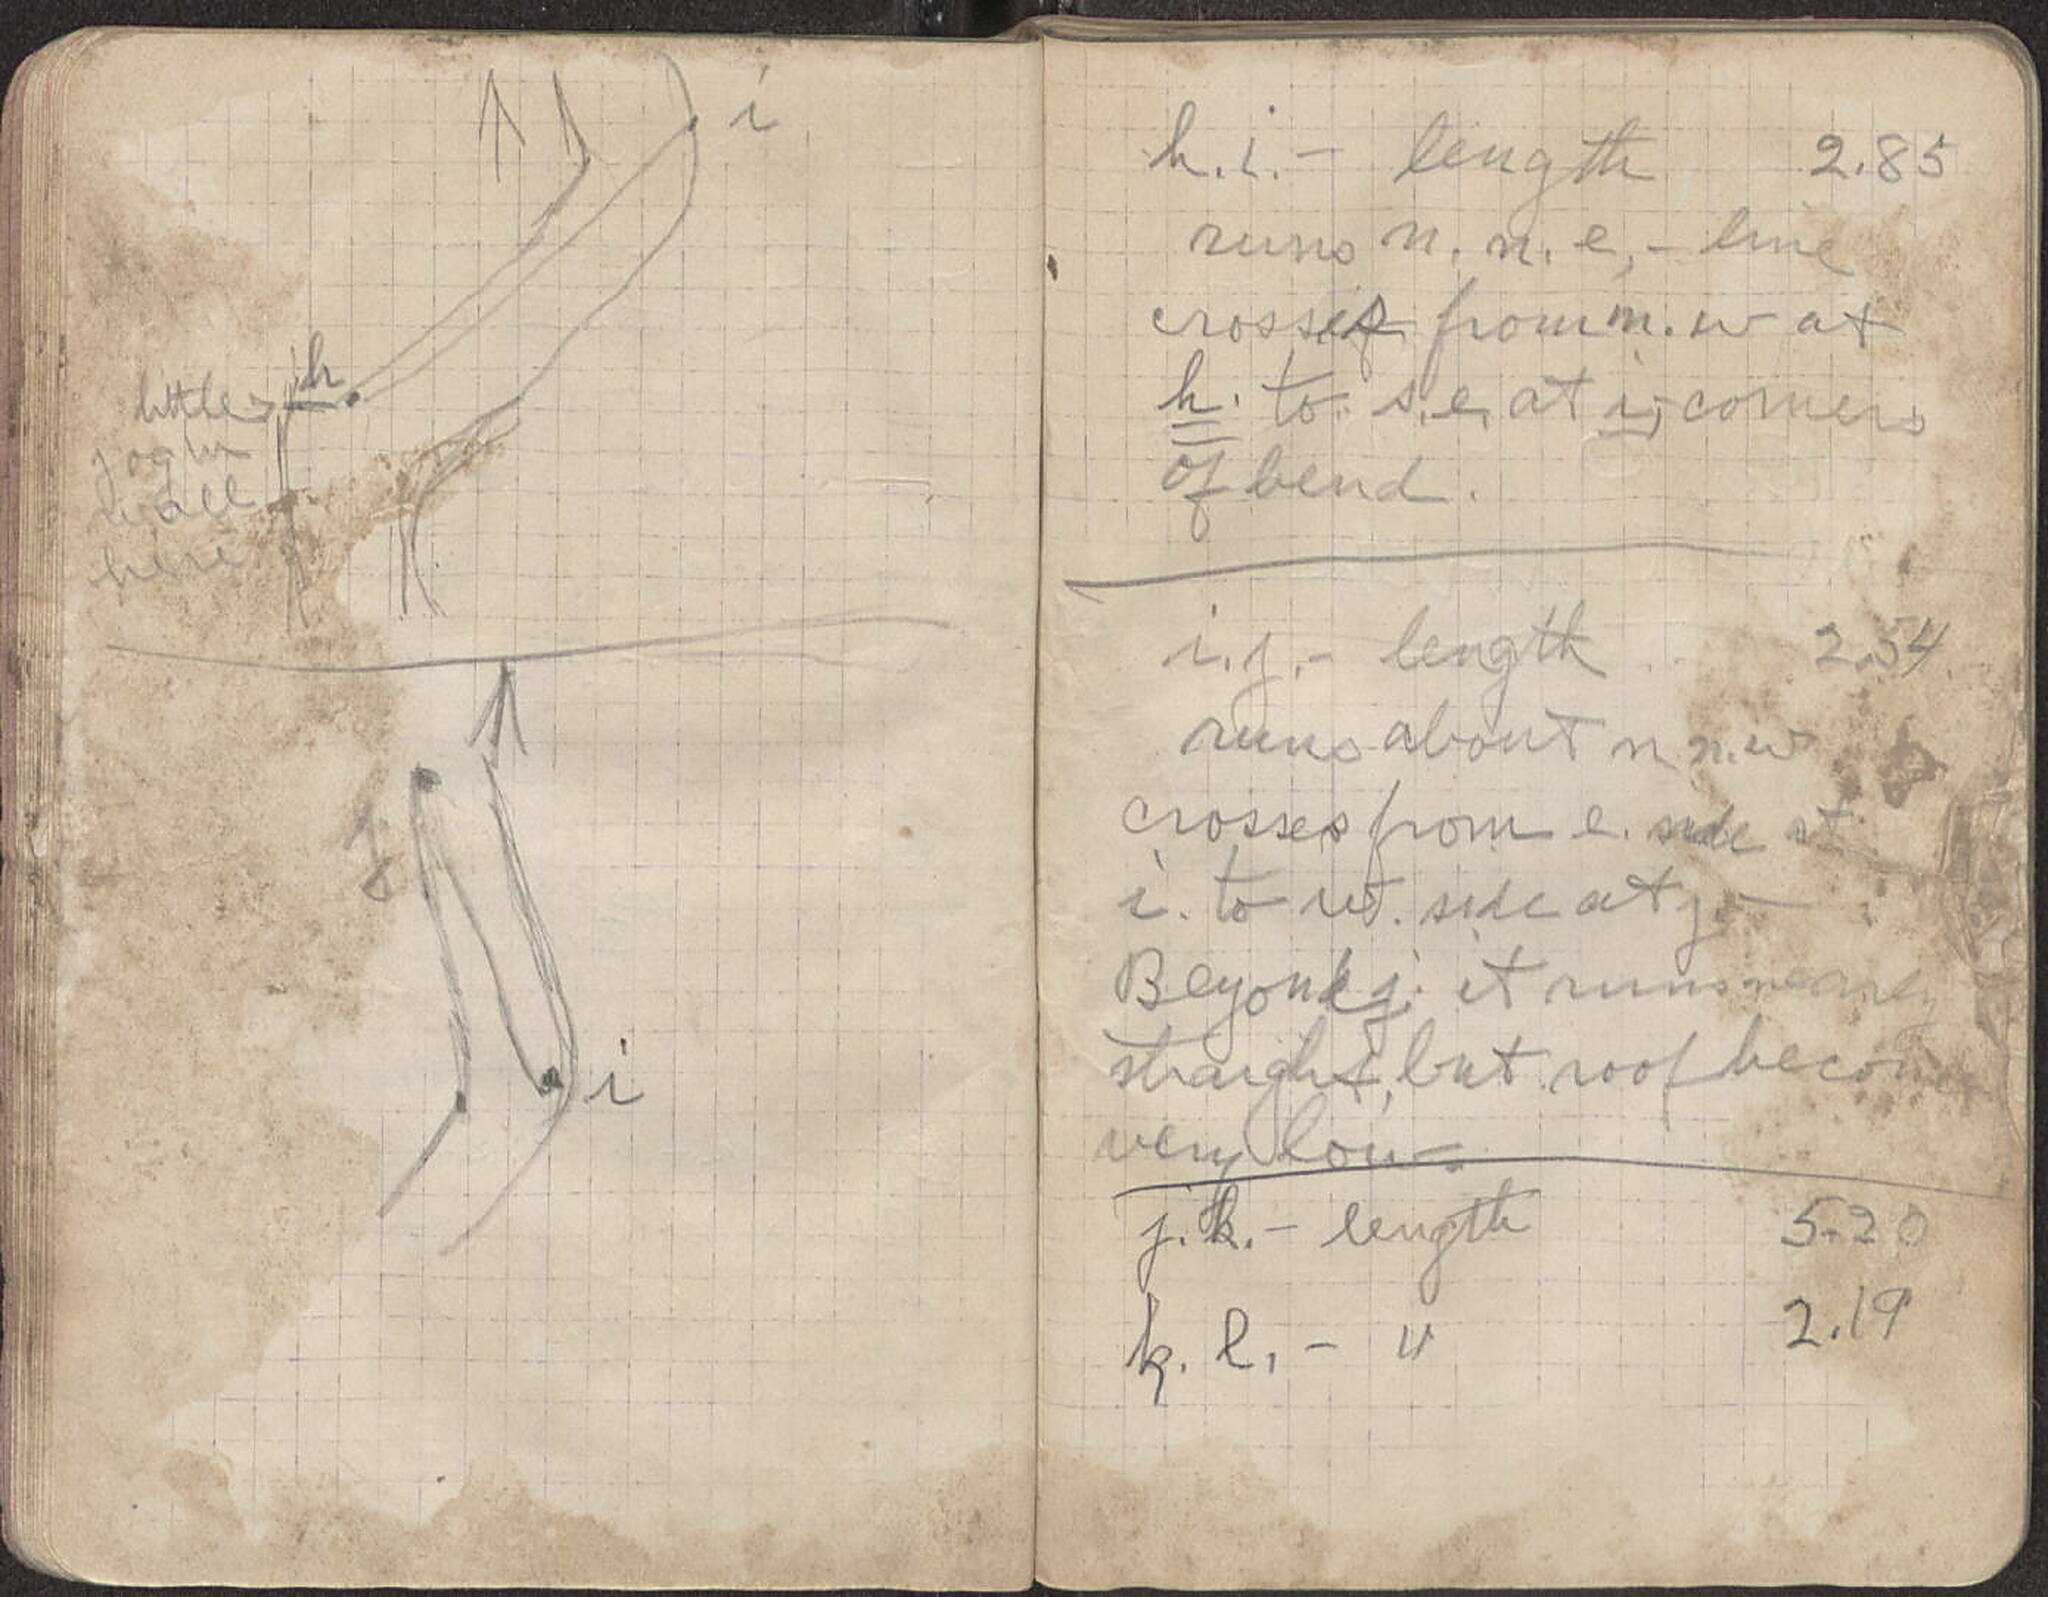 i
h
little
jog in
wall
here
j
i
h. i. - length 2.85
runs n. n. e, - line
crosses from n. w at
h. to s. e. at i, corners
of bend.
i. j. - length 2.54
runs about n n. w
crosses from e. side at
i. to w. side at j. -
Beyond j. it runs nearly
straight, but roof becomes
very low.
j. k. - length 5.20
k. l. - " 2.19